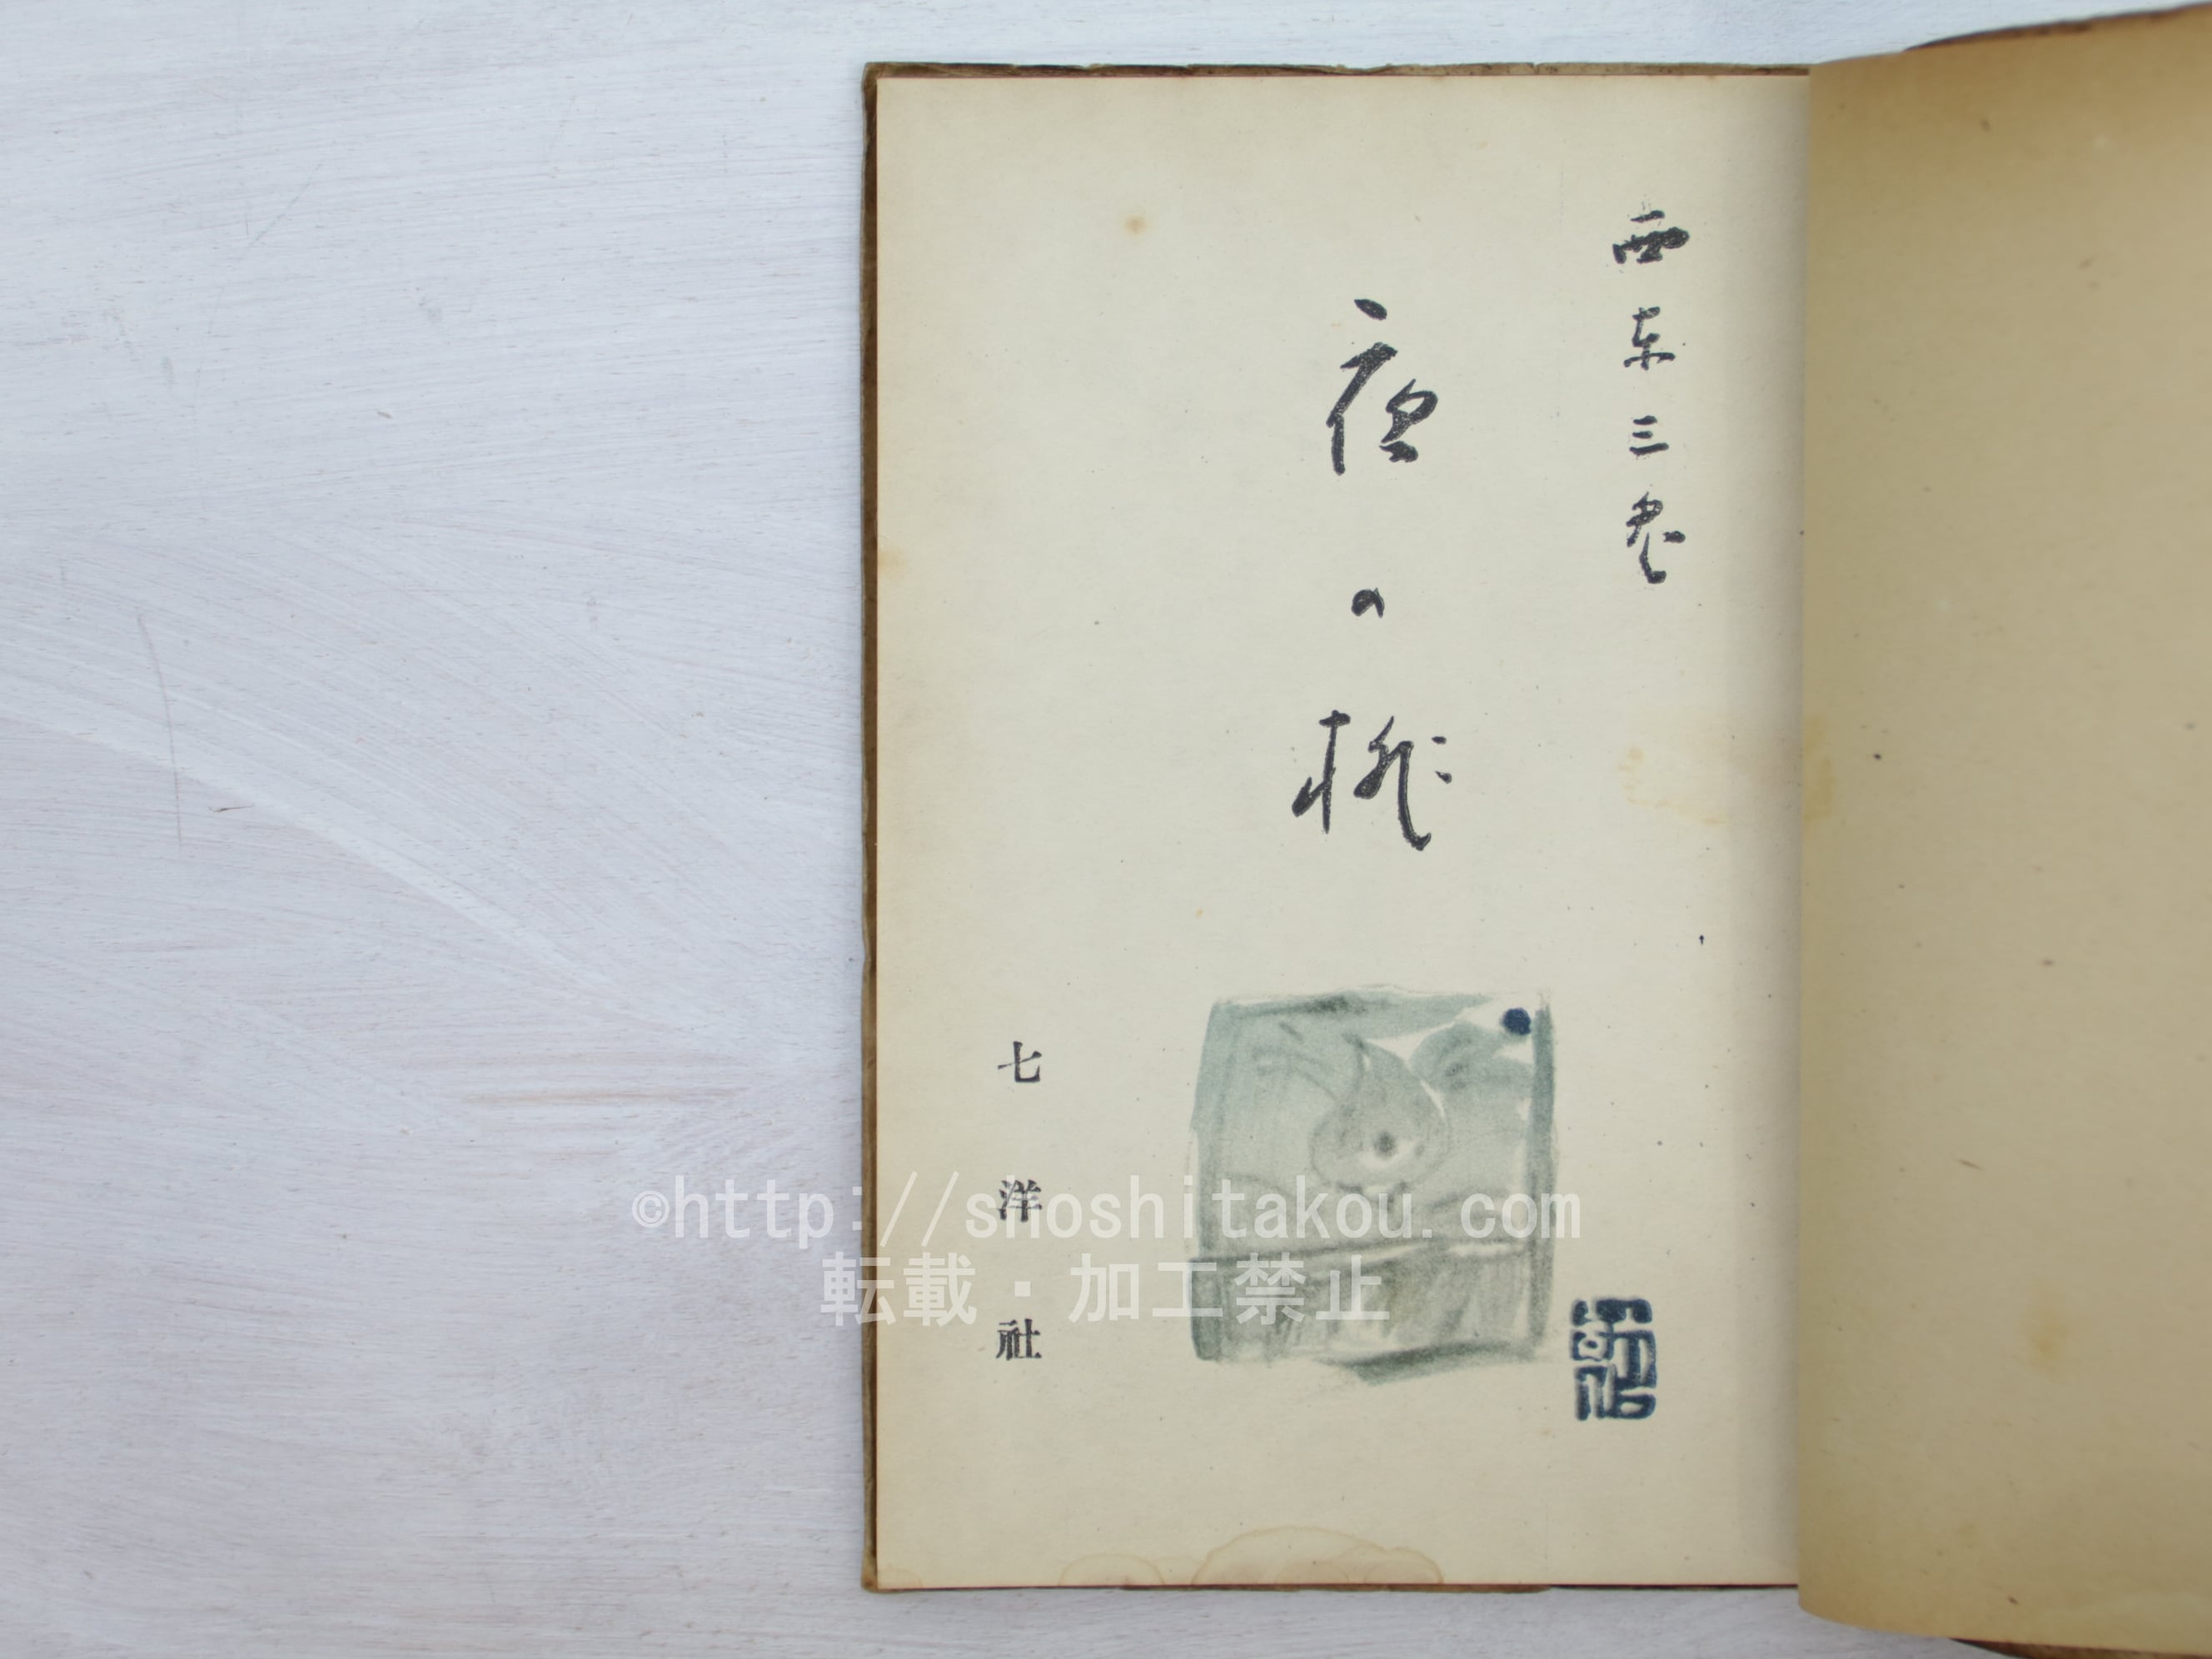 西東三鬼
夜の桃
七洋社
©http://shoshitakou.com
転載・加工禁止